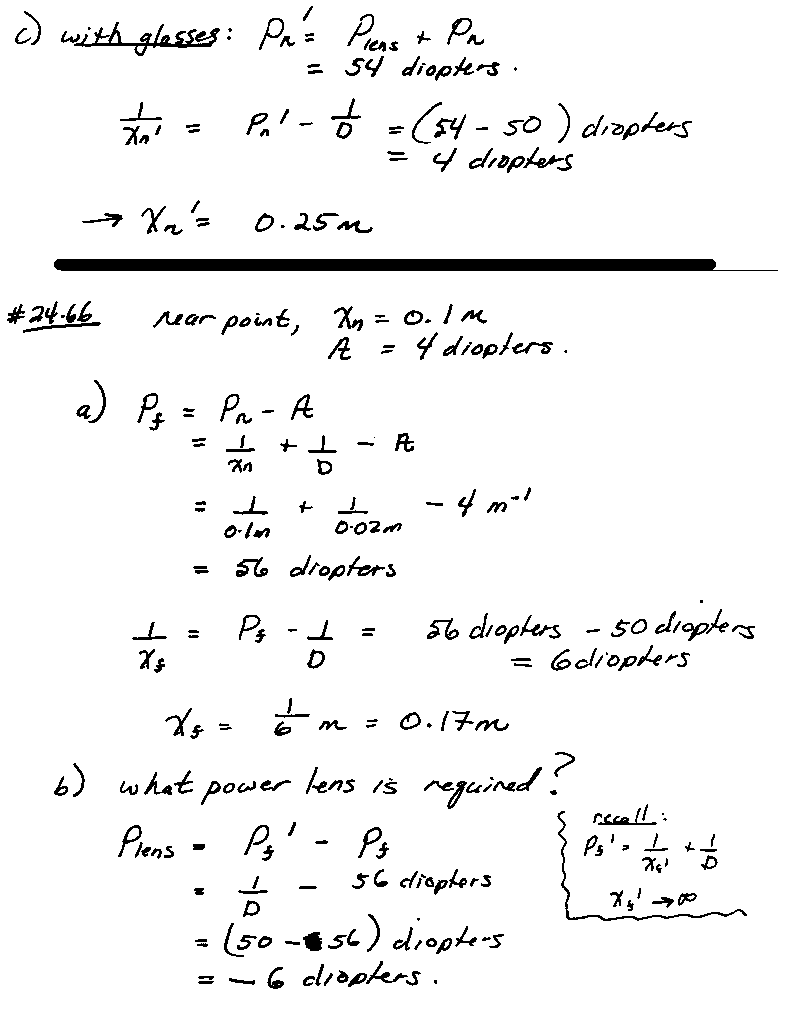 c) with glasses: Pn' = Plens + Pn
= 54 diopters.
1/xn' = Pn' - 1/D = (54 - 50) diopters
= 4 diopters
→ xn' = 0.25 m
#24.66 near point, xn = 0.1 m
A = 4 diopters.
a) Pf = Pn - A
= 1/xn + 1/D - A
= 1/0.1m + 1/0.02m - 4 m⁻¹
= 56 diopters
1/xf = Pf - 1/D = 56 diopters - 50 diopters
= 6 diopters
xf = 1/6 m = 0.17m
b) what power lens is required?
Plens = Pf' - Pf
= 1/D - 56 diopters
= (50 - 56) diopters
= - 6 diopters.
recall:
Pf' = 1/xf' + 1/D
xf' → ∞